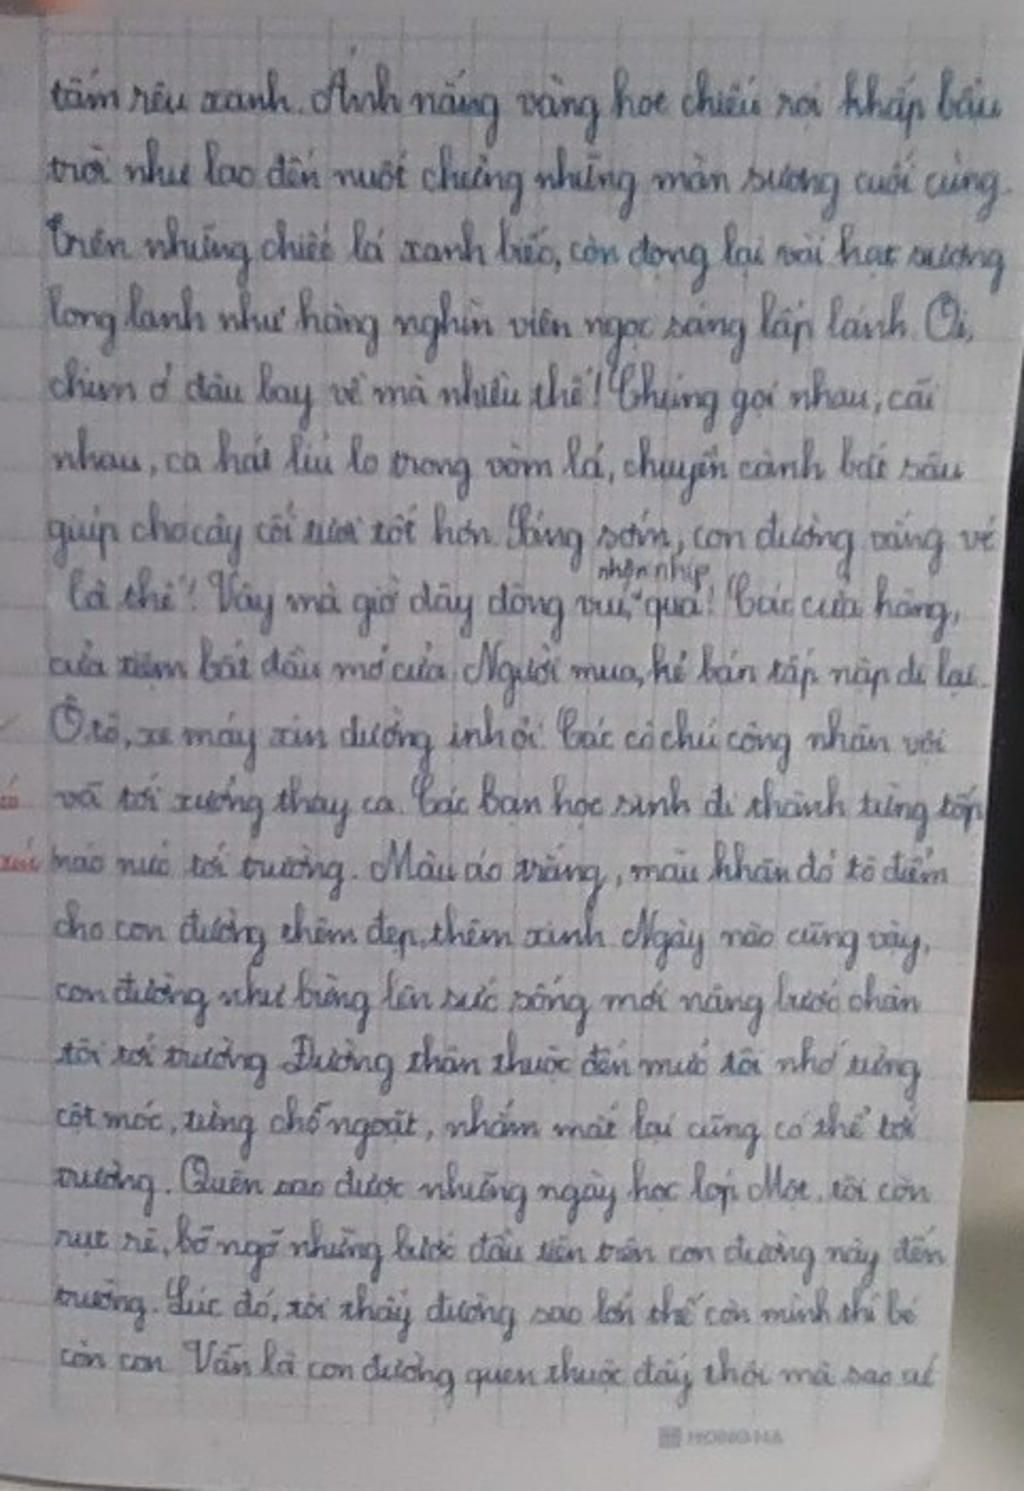 tấm rêu xanh. Ánh nắng vàng hoe chiếu rọi khắp bầu
trời như lao đến nuốt chửng những màn sương cuối cùng.
Trên những chiếc lá xanh biếc, còn đọng lại vài hạt sương
long lanh như hàng nghìn viên ngọc sáng lấp lánh. Ôi,
chim ở đâu bay về mà nhiều thế! Chúng gọi nhau, cãi
nhau, ca hát líu lo trong vòm lá, chuyền cành bắt sâu
giúp cho cây cối tươi tốt hơn. Sáng sớm, con đường vắng vẻ
là thế! Vậy mà giờ đây đông vui, nhộn nhịp quá! Các cửa hàng,
cửa tiệm bắt đầu mở cửa. Người mua, kẻ bán tấp nập đi lại.
Ô tô, xe máy xin đường inh ỏi. Các cô chú công nhân vội
vã tới xưởng thay ca. Các bạn học sinh đi thành từng tốp
náo nức tới trường. Màu áo trắng, màu khăn đỏ tô điểm
cho con đường thêm đẹp, thêm xinh. Ngày nào cũng vậy,
con đường như bừng lên sức sống mới nâng bước chân
tôi tới trường. Đường thân thuộc đến mức tôi nhớ từng
cột mốc, từng chỗ ngoặt, nhắm mắt lại cũng có thể tới
trường. Quên sao được những ngày học lớp Một, tôi còn
rụt rè, bỡ ngỡ những bước đầu tiên trên con đường này đến
trường. Lúc đó, tôi thấy đường sao lớn thế còn mình thì bé
còn con. Vẫn là con đường quen thuộc đấy thôi mà sao
HONG HA